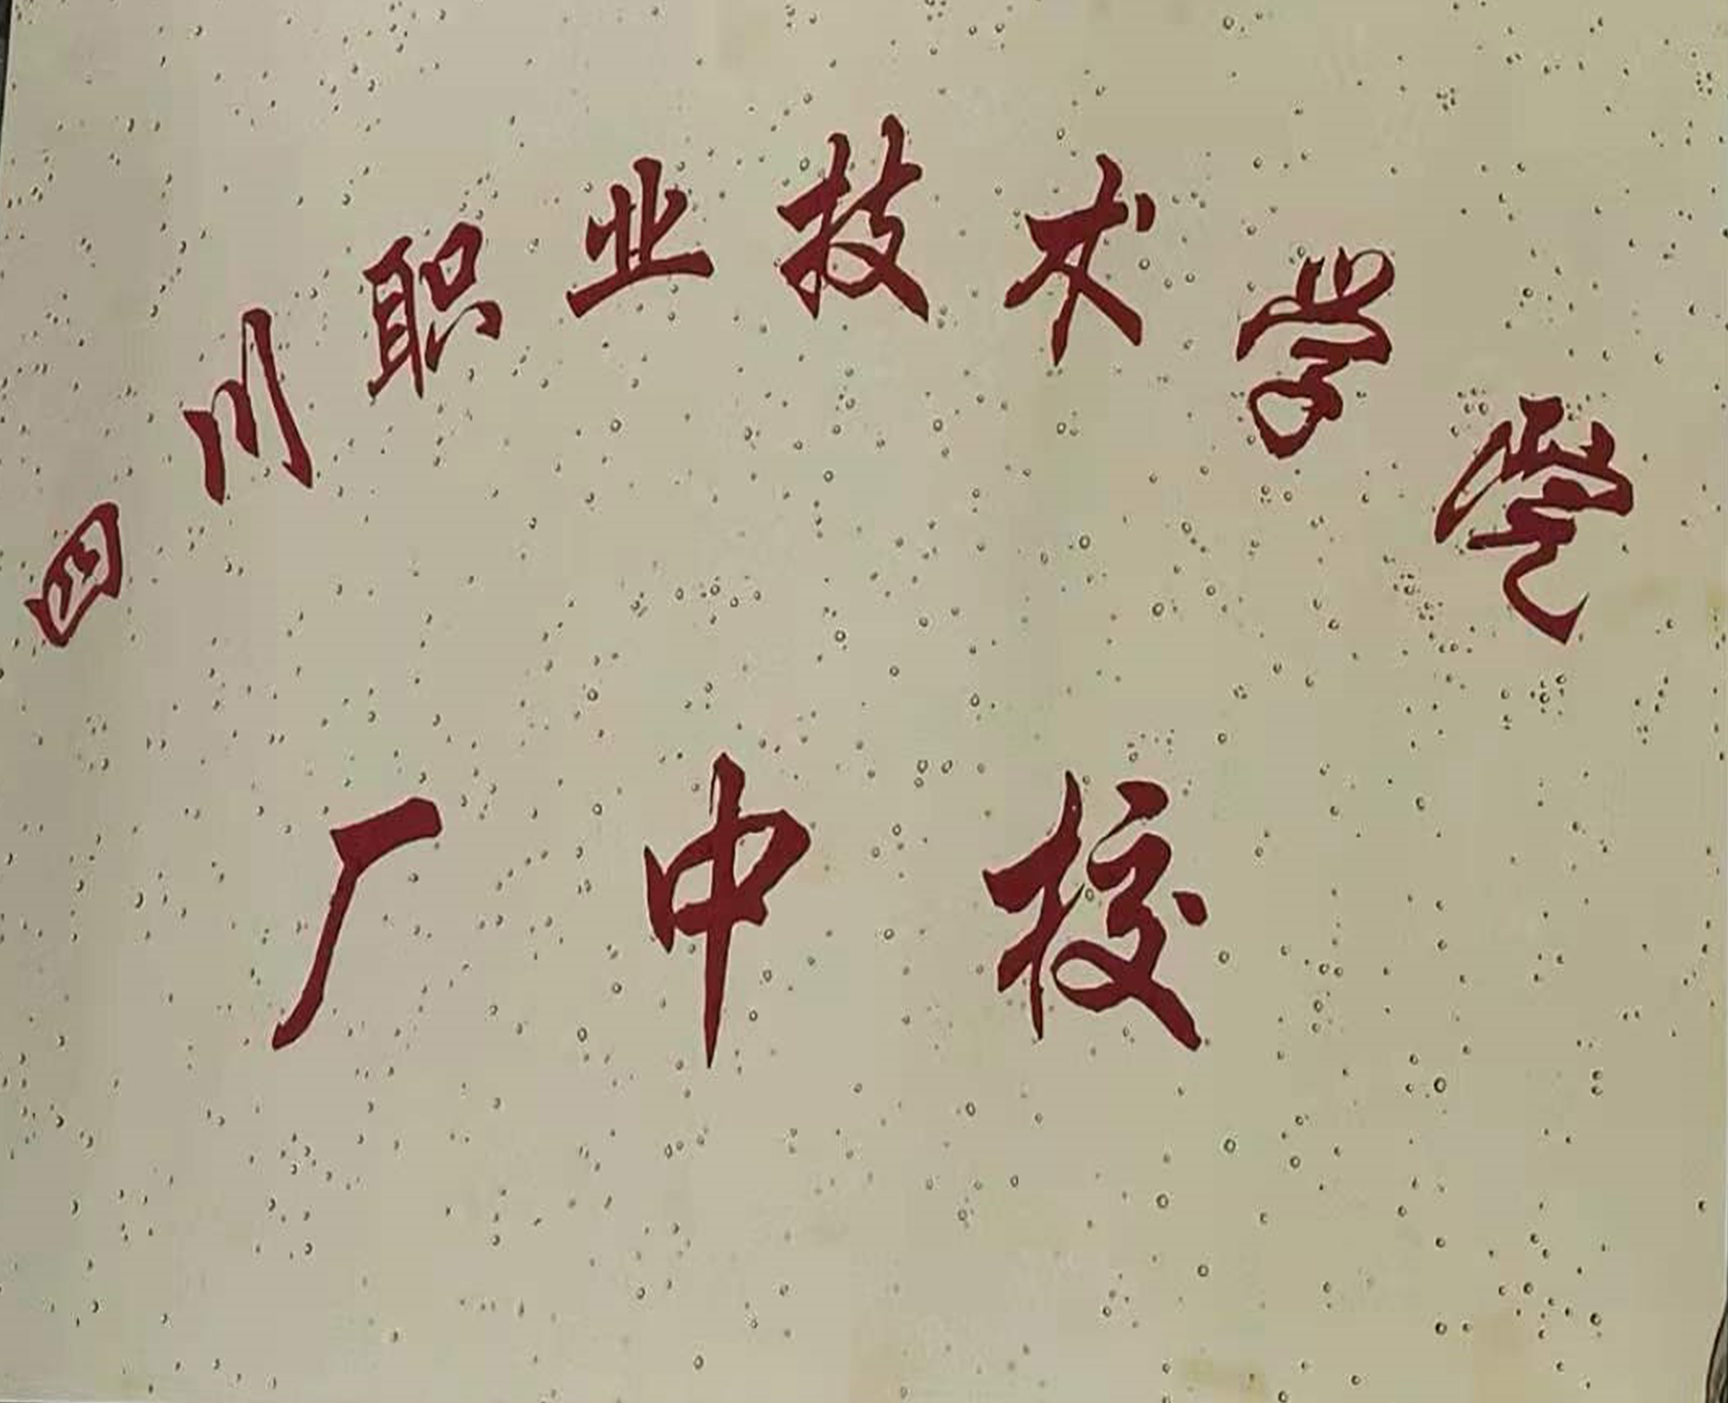 四川职业技术学院
厂中校